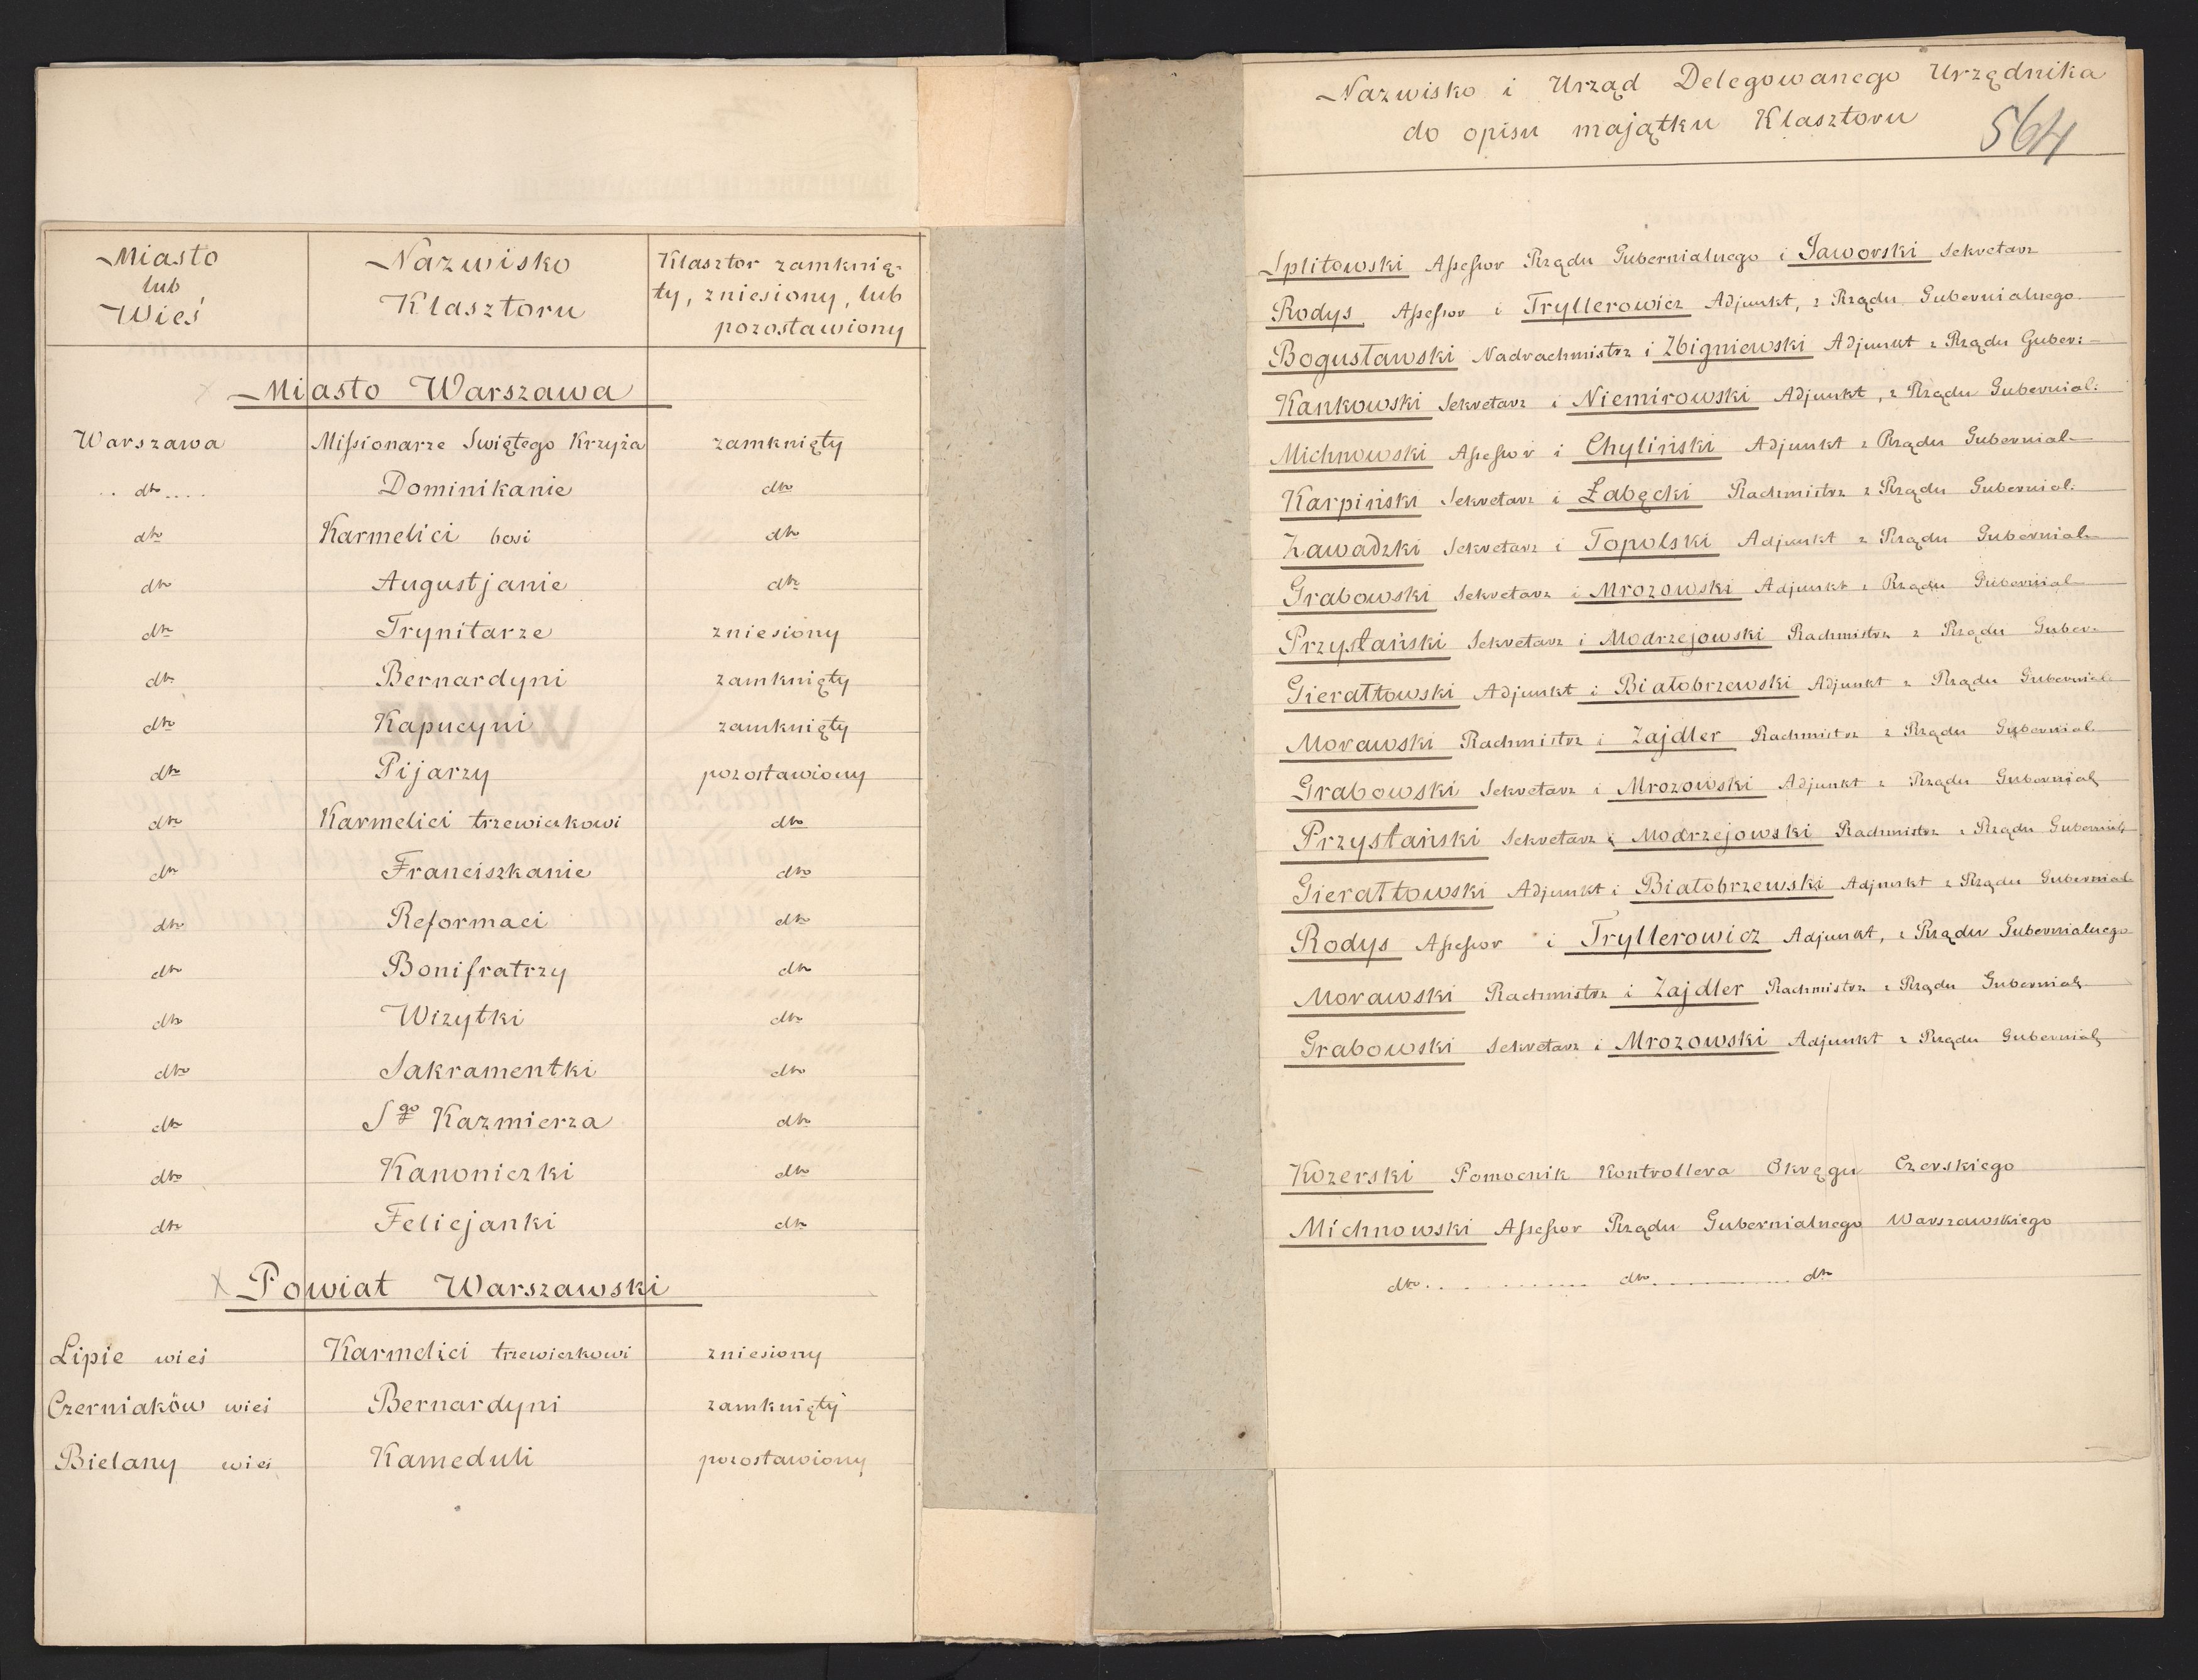 Miasto
lub
Wieś
Nazwisko
Klasztoru
Klasztor zamknię-
ty, zniesiony, lub
pozostawiony
Miasto Warszawa
Warszawa Missionarze Swiętego Krzyża zamknięty
dto Dominikanie dto
dto Karmelici bosi dto
dto Augustjanie dto
dto Trynitarze zniesiony
dto Bernardyni zamknięty
dto Kapucyni zamknięty
dto Pijarzy pozostawiony
dto Karmelici trzewiczkowi dto
dto Franciszkanie dto
dto Reformaci dto
dto Bonifratrzy dto
dto Wizytki dto
dto Sakramentki dto
dto Sgo Kazmierza dto
dto Kanoniczki dto
dto Felicjanki dto
Powiat Warszawski
Lipie wieś Karmelici trzewiczkowi zniesiony
Czerniaków wieś Bernardyni zamknięty
Bielany wieś Kameduli pozostawiony
Nazwisko i Urząd Delegowanego Urzędnika
do opisu majątku Klasztoru
564
Splitowski Assessor Rządu Gubernialnego i Jaworski Sekretarz
Rodys Assessor i Tryllerowicz Adjunkt, z Rządu Gubernialnego
Bogusławski Nadrachmistrz i Zbigniewski Adjunkt z Rządu Guber:
Kankowski Sekretarz i Niemirowski Adjunkt, z Rządu Gubernial:
Michnowski Assessor i Chyliński Adjunkt z Rządu Gubernial
Karpiński Sekretarz i Łabęcki Rachmistrz z Rządu Gubernial:
Zawadzki Sekretarz i Topolski Adjunkt z Rządu Gubernial
Grabowski Sekretarz i Mrozowski Adjunkt z Rządu Gubernial
Przystański Sekretarz i Modrzejowski Rachmistrz z Rządu Guber.
Gierałtowski Adjunkt i Białobrzewski Adjunkt z Rządu Gubernial
Morawski Rachmistrz i Zajdler Rachmistrz z Rządu Gubernial.
Grabowski Sekretarz i Mrozowski Adjunkt z Rządu Gubernial
Przystański Sekretarz i Modrzejowski Rachmistrz z Rządu Gubernial
Gierałtowski Adjunkt i Białobrzewski Adjunkt z Rządu Gubernial
Rodys Assessor i Tryllerowicz Adjunkt, z Rządu Gubernialnego
Morawski Rachmistrz i Zajdler Rachmistrz z Rządu Gubernial
Grabowski Sekretarz i Mrozowski Adjunkt z Rządu Gubernial
Kozerski Pomocnik Kontrollera Okręgu Czerskiego
Michnowski Assessor Rządu Gubernialnego Warszawskiego
dto dto dto